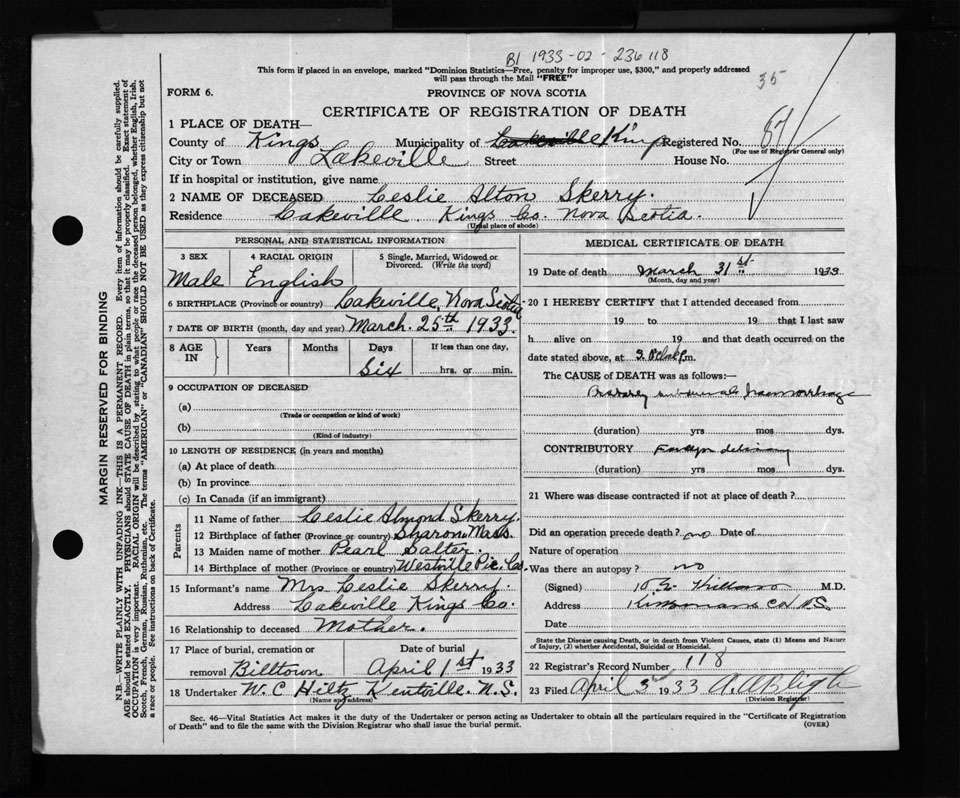 B1 1933-02-236118
This form if placed in an envelope, marked "Dominion Statistics—Free, penalty for improper use, $300," and properly addressed
will pass through the Mail "FREE"
35
FORM 6. PROVINCE OF NOVA SCOTIA
CERTIFICATE OF REGISTRATION OF DEATH
1 PLACE OF DEATH—
County of Kings Municipality of Lakeville Kings Registered No. 87
(For use of Registrar General only)
City or Town Lakeville Street House No.
If in hospital or institution, give name
2 NAME OF DECEASED Leslie Alton Skerry.
Residence Lakeville Kings Co. Nova Scotia.
(Usual place of abode)
PERSONAL AND STATISTICAL INFORMATION
3 SEX 4 RACIAL ORIGIN 5 Single, Married, Widowed or
Divorced. (Write the word)
Male English
6 BIRTHPLACE (Province or country) Lakeville, Nova Scotia
7 DATE OF BIRTH (month, day and year) March. 25th 1933.
8 AGE IN Years Months Days If less than one day,
Six hrs. or min.
9 OCCUPATION OF DECEASED
(a)
(Trade or occupation or kind of work)
(b)
(Kind of industry)
10 LENGTH OF RESIDENCE (in years and months)
(a) At place of death
(b) In province
(c) In Canada (if an immigrant)
Parents
11 Name of father Leslie Almond Skerry.
12 Birthplace of father (Province or country) Sharon Mass.
13 Maiden name of mother Pearl Salter.
14 Birthplace of mother (Province or country) Westville Pic. Co.
15 Informant's name Mrs Leslie Skerry.
Address Lakeville Kings Co.
16 Relationship to deceased Mother.
17 Place of burial, cremation or Date of burial
removal Billtown April 1st 1933
18 Undertaker W. C Hiltz Kentville. N. S.
(Name and address)
MEDICAL CERTIFICATE OF DEATH
19 Date of death March 31st 1933
(Month, day and year)
20 I HEREBY CERTIFY that I attended deceased from
19 to 19 that I last saw
h alive on 19 and that death occurred on the
date stated above, at m.
The CAUSE of DEATH was as follows:—
haemorrhage
(duration) yrs mos dys.
CONTRIBUTORY
(duration) yrs mos dys.
21 Where was disease contracted if not at place of death?
Did an operation precede death? no Date of
Nature of operation
Was there an autopsy? no
(Signed) M.D.
Address
Date
State the Disease causing Death, or in death from Violent Causes, state (1) Means and Nature
of Injury, (2) whether Accidental, Suicidal or Homicidal.
22 Registrar's Record Number 118
23 Filed April 3rd 1933 A. A. Bligh
(Division Registrar)
Sec. 46—Vital Statistics Act makes it the duty of the Undertaker or person acting as Undertaker to obtain all the particulars required in the "Certificate of Registration
of Death" and to file the same with the Division Registrar who shall issue the burial permit. (OVER)
MARGIN RESERVED FOR BINDING
N.B.—WRITE PLAINLY WITH UNFADING INK—THIS IS A PERMANENT RECORD. Every item of information should be carefully supplied.
AGE should be stated EXACTLY. PHYSICIANS should STATE CAUSE OF DEATH in plain terms, so that it may be properly classified. Exact statement of
OCCUPATION is very important. RACIAL ORIGIN will be described by stating to what people or race the deceased person belonged, whether English, Irish,
Scotch, French, German, Russian, Ruthenian, etc. The terms "AMERICAN" or "CANADIAN" SHOULD NOT BE USED as they express citizenship but not
a race or people. See instructions on back of Certificate.